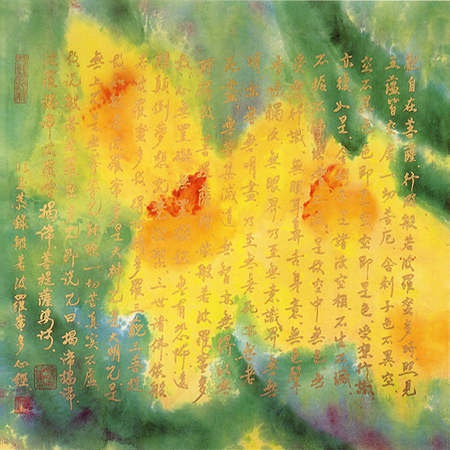 自在菩薩行般若波羅蜜多時照見
五蘊皆空度一切苦厄舍利子色不異空
空不異色色即是空空即是色受想行識
亦復如是舍利子是諸法空相不生不滅
不垢不淨不增不減是故空中無色無
受想行識無眼耳鼻舌身意無色聲
香味觸法無眼界乃至無意識界無
明亦無無明盡乃至無老死亦無老死
盡無苦集滅道無智亦無得以無所
得故菩提薩埵依般若波羅蜜多
故心無罣礙無罣礙故無有恐怖遠
離顛倒夢想究竟涅槃三世諸佛依般
若波羅蜜多故得阿耨多羅三藐三菩提
故知般若波羅蜜多是大神咒是大明咒是
無上咒是無等等咒能除一切苦真實不虛
故說般若波羅蜜多咒即說咒曰揭諦揭帝
波羅揭諦波羅僧揭諦菩提薩婆訶
恭錄般若波羅蜜多心經